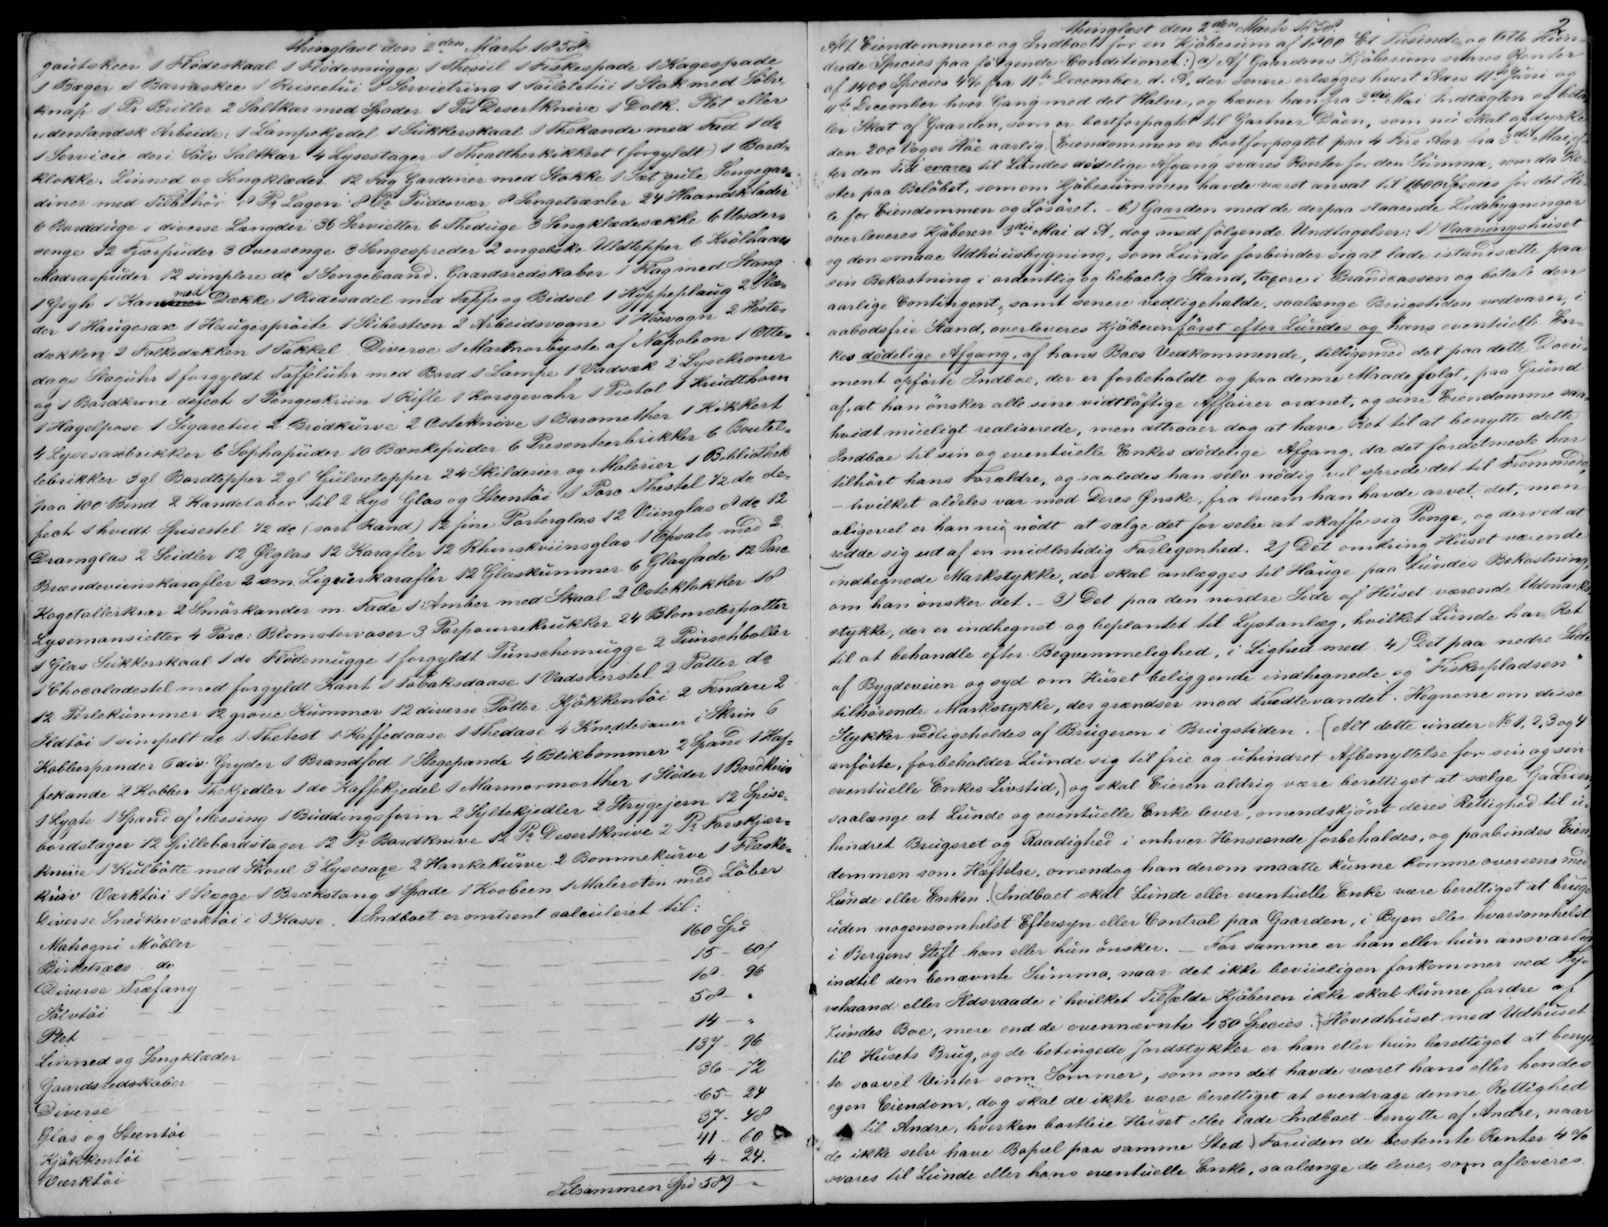 thinglæst den 2den Marts 1858
gaütskeer 1 Flödeskaal 1 Flödemügge 1 Theseil 1 Fiskespade 1 Kagespade
1 Bæger 1 Barnaskee 1 Reiseetüi 1 Servietring 1 Toiletetüi 1 Stok med Sölv
knap 1 Pr Briller 2 Saltkar med Spader 1 Pr Desertknive 1 Dolk. Plet eller
udenlandsk Arbeide: 1 Lampekjedel 1 Sükkerskaal 1 Thekande med Fad 1 do
1 Servicie deri Sölv Saltkar 4 Lysestager 1 Theatterkikkert (forgyldt) 1 Bord-
klokke. Linned og Sengklæder 12 Fag Gardiner med Stokke 1 Sæt güle Sengegar-
diner med Tilbehör 8 Pr Lagen 8 Dr Püdevær 8 Sengetræxler 24 Haandklæder
6 Borddüge i diverse Længder 36 Servietter 6 Thedüge 3 Sengklædesække 6 Under-
senge 12 Fjærpüder 3 Oversenge 3 Sengespreder 2 engelske Uldtepper 6 Krölhaars
Madraspüder 12 simplere do 1 Sengebaand. Gaardsredskaber 1 Flag med Stang
1 Gigh 1 Kane med Dække 1 Ridesadel med Teppe og Bidsel 1 Hyppeplaug 2 Slæ-
der 1 Haugesax 1 Haugespröite 1 Slibesteen 2 Arbeidsvogne 1 Hövogn 2 Heste-
dækken 2 Folkedækken 1 Takkel. Diverse 1 Marmorbyste af Napoleon 1 Otte-
dags Stagühr 1 forgyldt Taffelühr med Bord 1 Lampe 1 Vadsæk 2 Lysekroner
og 1 Bordkrone defect 1 Pengeskriin 1 Rifle 1 Korsgevæhr 1 Pistol 1 Krudthorn
1 Hagelpose 1 Sigaretüi 2 Brödkürve 2 Osteknive 1 Baromether 1 Kikkert
4 Lysesaxbrikker 6 Sophapüder 10 Bænkepüder 6 Presenteerbrikker 6 Boutel-
lebrikker 3 gl Bordtepper 2 gl Gülvetepper 24 Skilderier og Malerier 1 Bibliothek
paa 100 Bind 2 Kandelaber til 2 Lys Glas og Steentöi 1 Porc Thestel 1/2 do de-
fect 1 hvidt Spisestel 1/2 do (sort Rand) 12 fine Porterglas 12 Viinglas 8 do 12
Dramglas 2 Seidler 12 Ölglas 12 Karafler 12 Rhinskviinsglas 1 Opsats med 2
Brændeviinskarafler 2 sm. Liqeurkarafler 12 Glaskummer 6 Glasfade 12 Porc
Kagetallerkner 2 Smörkander m. Fade 1 Amber med Skaal 2 Osteklokker 18
Lysemansietter 4 Porc: Blomstervaser 3 Porpourrekrükker 24 Blomsterpotter
1 Glas Sükkerskaal 1 do Flödemügge 1 forgyldt Pünschemügge 2 Pünschboller
1 Chocoladestel med forgyldt Kant 1 Tobaksdaase 1 Vadskerstel 2 Potter do
12 Perlekummer 12 grove Kummer 12 diverse Potter. Kjökkentöi 2 Fendere 2
Ildtöi 1 simpelt do 1 Thetest 1 Kaffedaase 1 Thedase 4 Knodtesauer i Skrin 6
Kobberpander 6 div. Gryder 1 Brandfod 1 Stegepande 4 Bliktrommer 2 Spand 1 Kaf-
fekande 2 Kobber Thekjedler 1 do Kaffekjedel 1 Marmormorther 1 Stöder 1 Bordkniv
1 Lygte 1 Spand af Messing 1 Büddingsform 2 Syltekjedler 2 Strygejern 12 Spise-
bordstager 12 Spillebordstager 12 Pr Bordknive 12 Pr Desertknive 2 Pr Forskjær-
knive 1 Külbötte med Skovl 3 Lysesaxe 2 Hankekürve 2 Bommekürve 1 Flaske-
kürv Værktöi 1 Slægge 1 Brækstang 1 Spade 1 Koobeen 1 Malersten med Löber
Diverse Snedkerværktöi i 1 Kasse. Indboet er omtrent calculeret til:
Mahogni Möbler 160 Spd
Birketræes do 15 - 60 ß
Diverse Træfang 18 - 96
Sölvtöi 58 - "
Plet 14 - "
Linned og Sengklæder 137 - 96
Gaardsredskaber 36 - 72
Diverse 65 - 24
Glas og Steentöi 37 - 48
Kjökkentöi 41 - 60
Værktöi 4 - 24.
Tilsammen Spd 589 "
thinglæst den 2den Marts 1858.
2
Alt Eiendommene og Indboet for en Kjöbesum af 1800 Et Tusinde og Otte Hün-
drede Species paa fölgende Conditioner: a) Af Gaardens Kjöbesum svares Renter
af 1400 Species 4% fra 11te December d. A, der senere erlægges hvert Aars 11te Jüni og
11te December hver Gang med det Halve, og hæver han fra 3die Mai Indtægten og beta-
ler Skat af Gaarden, som er bortforpagtet til Gartner Döen, som nü skal opdyrke
den 200 Voger Höe aarlig. (Eiendommen er bortforpagtet paa 4 Fire Aar fra 3die Mai, ef-
ter den Tid svares til Lundes dödelige Afgang svares Renter for den Summa, som da Re-
ster paa Belöbet, som om Kjöbesummen havde været ansat til 1600 Species for det He-
le for Eiendommen og Lösöret. - b) Gaarden med de derpaa staaende Ladebygninger
overleveres Kjöberen 3die Mai d A, dog med fölgende Undtagelser: 1) Vaaningshüset
og den smaae Udhüüsbygning, som Lunde forbinder sig at lade istandsætte paa
sin Bekostning i ordentlig og beboelig Stand, taxere i Brandcassen og betale den
aarlige Contingent, samt senere vedligeholde, saalænge Brugstiden vedvarer, i
aabodsfrie Stand, overleveres Kjöberen först efter Lundes og hans eventuelle En-
kes dödelige Afgang, af hans Boes Vedkommende, tilligemed det paa dette Docu-
ment opförte Indboe, der er forbeholdt og paa denne Maade solgt, paa Grund
af, at han önsker alle sine vidtlöftige Affairer ordnet, og sine Eiendomme saa-
hvidt mueligt realiserede, men attraaer dog at have Ret til at benytte dette
Indboe til sin og eventuelle Enkes dödelige Afgang, da det fordetmeste har
tilhört hans Forældre, og saaledes han selv nödig vil sprede det til Fremmede,
- hvilket aldeles var mod Deres Ønske, fra hvem han havde arvet det, men
aligevel er han nü nödt at sælge det for selv at skaffe sig Penge, og derved at
redde sig ud af en midlertidig Forlegenhed. 2) Det omkring Hüset værende
indhegnede Markstykke, der skal anlægges til Hauge paa Lundes Bekostning,
om han önsker det. - 3) Det paa den nordre Side af Hüset værende Udmarks-
stykke, der er indhegnet og beplantet til Lystanlæg, hvilket Lunde har Ret
til at behandle efter Beqvemmelighed, i Lighed med 4) Det paa nedre Side
af Bygdeveien og syd om Hüset beliggende indhegnede og "Fiskepladsen"
tilhörende Markstykke, der grændser mod Tvedtevandet. Hegnene om disse
Stykker vedligeholdes af Brügeren i Brügstiden. (Alt dette ünder No 1, 2, 3 og 4
anförte, forbeholder Lunde sig til frie og uhindret Afbenyttelse for sin og sin
eventuelle Enkes Livstid,) og skal Eieren aldrig være berettiget at sælge Gaarden,
saalænge at Lunde og eventuelle Enke lever, omendskjönt deres Rettighed til ü-
hindret Brügsret og Raadighed i enhver Henseende forbeholdes, og paabindes Eien-
dommen som Hæftelse, omendog han derom maatte künne komme overeens med
Lunde eller Enken. (Indboet skal Lunde eller eventuelle Enke være berettiget at brüge
üden nogensomhelst Eftersyn eller Control paa Gaarden, i Byen eller hvorsomhelst
i Bergens Stift han eller hün önsker. - For samme er han eller hün ansvarlig
indtil den benævnte Summa, naar det ikke beviisligen forkommer ved Tyve-
vehaand eller Ildsvaade i hvilket Tilfælde Kjöberen ikke skal künne fordre af
Lundes Boe, mere end de ovennævnte 450 Species.) Hovedhuset med Udhuset
til Husets Brug, og de betingede Jordstykker er han eller hün berettiget at benyt-
te saavel Vinter som Sommer, som om det havde været hans eller hendes
egen Eiendom, dog skal de ikke være berettiget at overdrage denne Rettighed
til Andre, hverken bortleie Hüset eller lade Indboet benytte af Andre, naar
de ikke selv have Bopæl paa samme Sted.) Foruden de bestemte Renter 4%
svares til Lunde eller hans eventuelle Enke, saalænge de leve, som afleveres